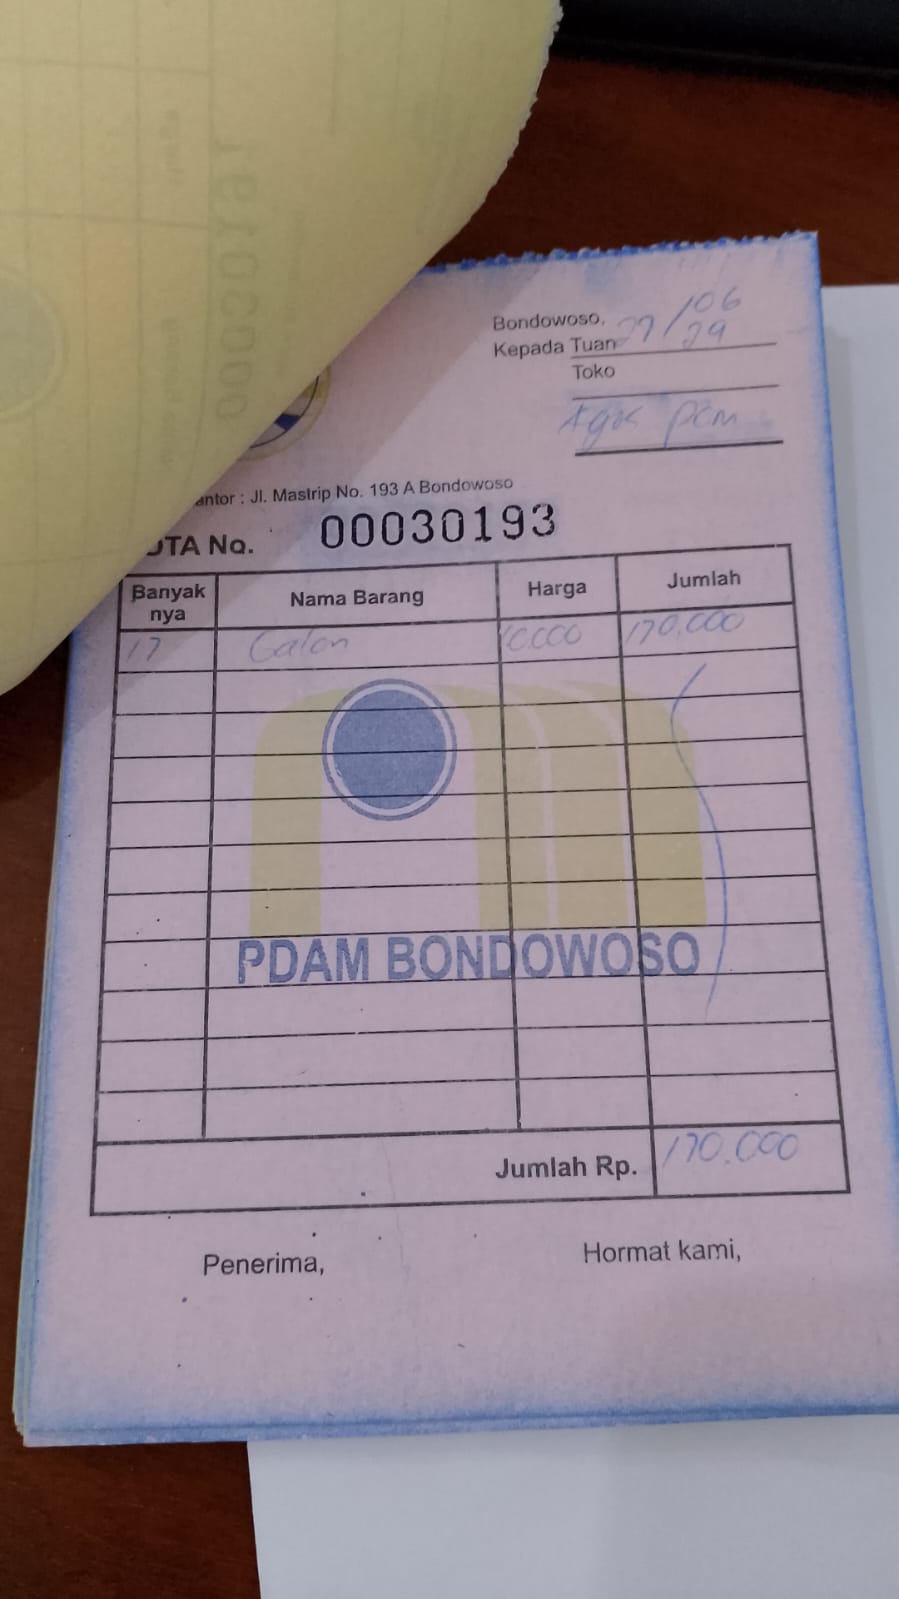 Bondowoso, 27/06
Kepada Tuan 29
Toko
Agus pcm
antor : Jl. Mastrip No. 193 A Bondowoso
OTA No. 00030193
Banyak nya Nama Barang Harga Jumlah
17 Galon 10.000 170.000
PDAM BONDOWOSO
Jumlah Rp. 170.000
Penerima, Hormat kami,